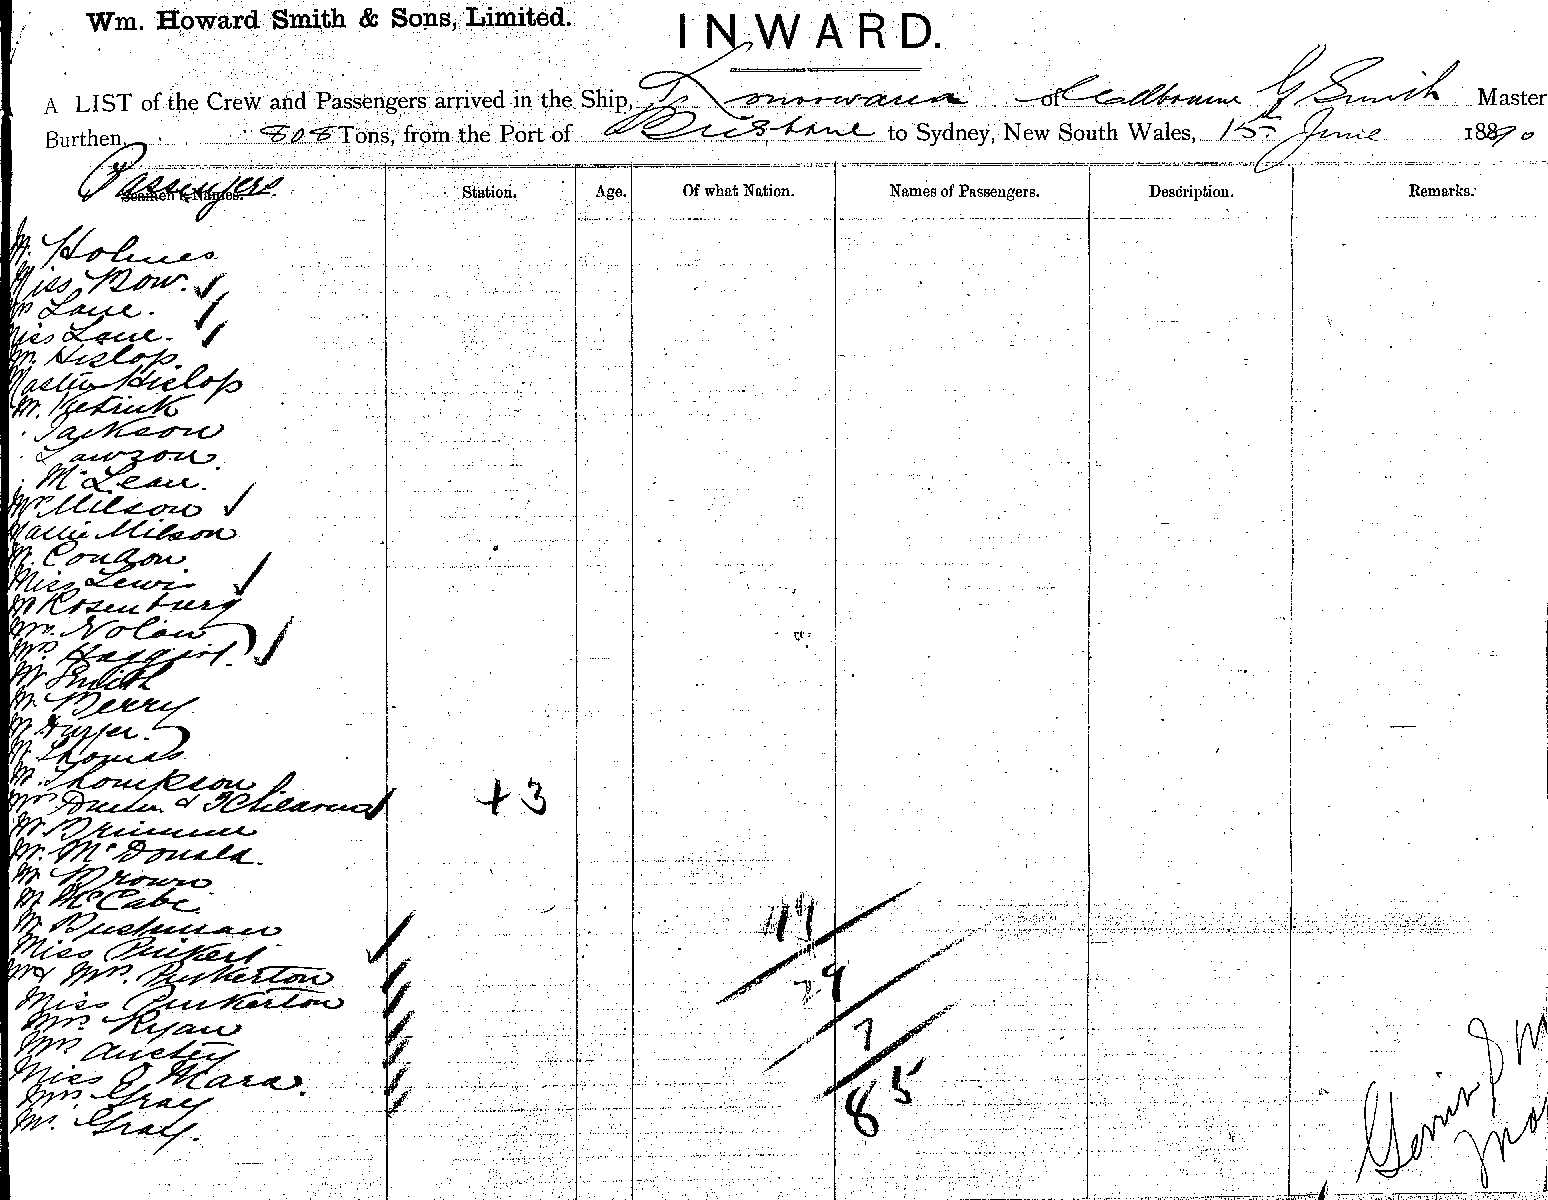 Wm. Howard Smith & Sons, Limited.
INWARD.
A LIST of the Crew and Passengers arrived in the Ship, Konoowarra of Melbourne G Smith Master
Burthen 808 Tons, from the Port of Brisbane to Sydney, New South Wales, 15 June 1890
Passengers
Seamen's Names. Station. Age. Of what Nation. Names of Passengers. Description. Remarks.
Mr. Holmes
Miss Bow.
Mrs Lane.
Miss Lane.
Mr. Hislop
Master Hislop
Mr.
Jackson
Lawson.
McLean.
Mrs Milson
Master Milson
Mr. Condon.
Miss Lewis
Mr Rosenburg
Mrs. Nolan
Mrs
Mr Smith
Mr. Berry
Mr Harper.
Mr. Thomas
Mr. Thompson
Mrs & 3 Children + 3
Mr Brimmer
Mr. McDonald.
Mr Brown
Mr McCabe
Mr Bushman
Miss
Mr & Mrs. Pinkerton
Miss Pinkerton
Mrs Ryan
Mrs Anstey
Miss O Mara.
Mrs. Gray
Mr. Gray.
49
29
7
85